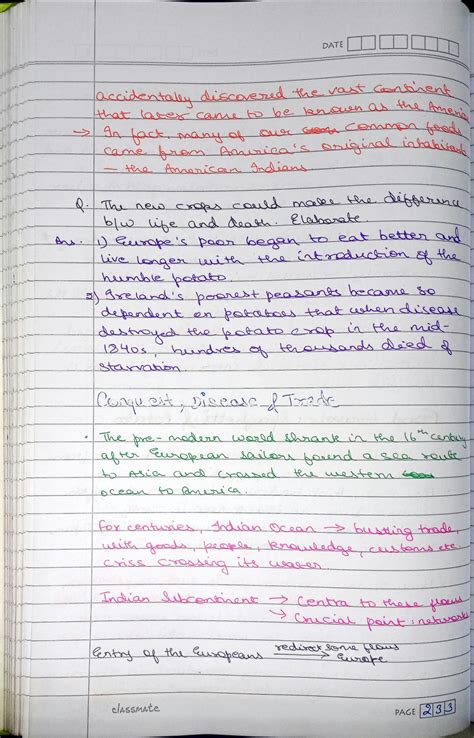 DATE
accidentally discovered the vast continent
that later came to be known as the America
→ In fact, many of our common foods
came from America's original inhabitants
— the American Indians
Q. The new crops could make the difference
b/w life and death. Elaborate.
Ans. 1) Europe's poor began to eat better and
live longer with the introduction of the
humble potato.
2) Ireland's poorest peasants became so
dependent on potatoes that when disease
destroyed the potato crop in the mid-
1840s, hundreds of thousands died of
starvation.
Conquest, Disease & Trade
• The pre-modern world shrank in the 16th century
after European sailors found a sea route
to Asia and crossed the western
ocean to America.
For centuries, Indian Ocean → bustling trade,
with goods, people, knowledge, customs etc.
criss crossing its water.
Indian Subcontinent → Centra to these flows
→ Crucial point, networks
Entry of the Europeans redirect some flows → Europe
classmate
PAGE 233